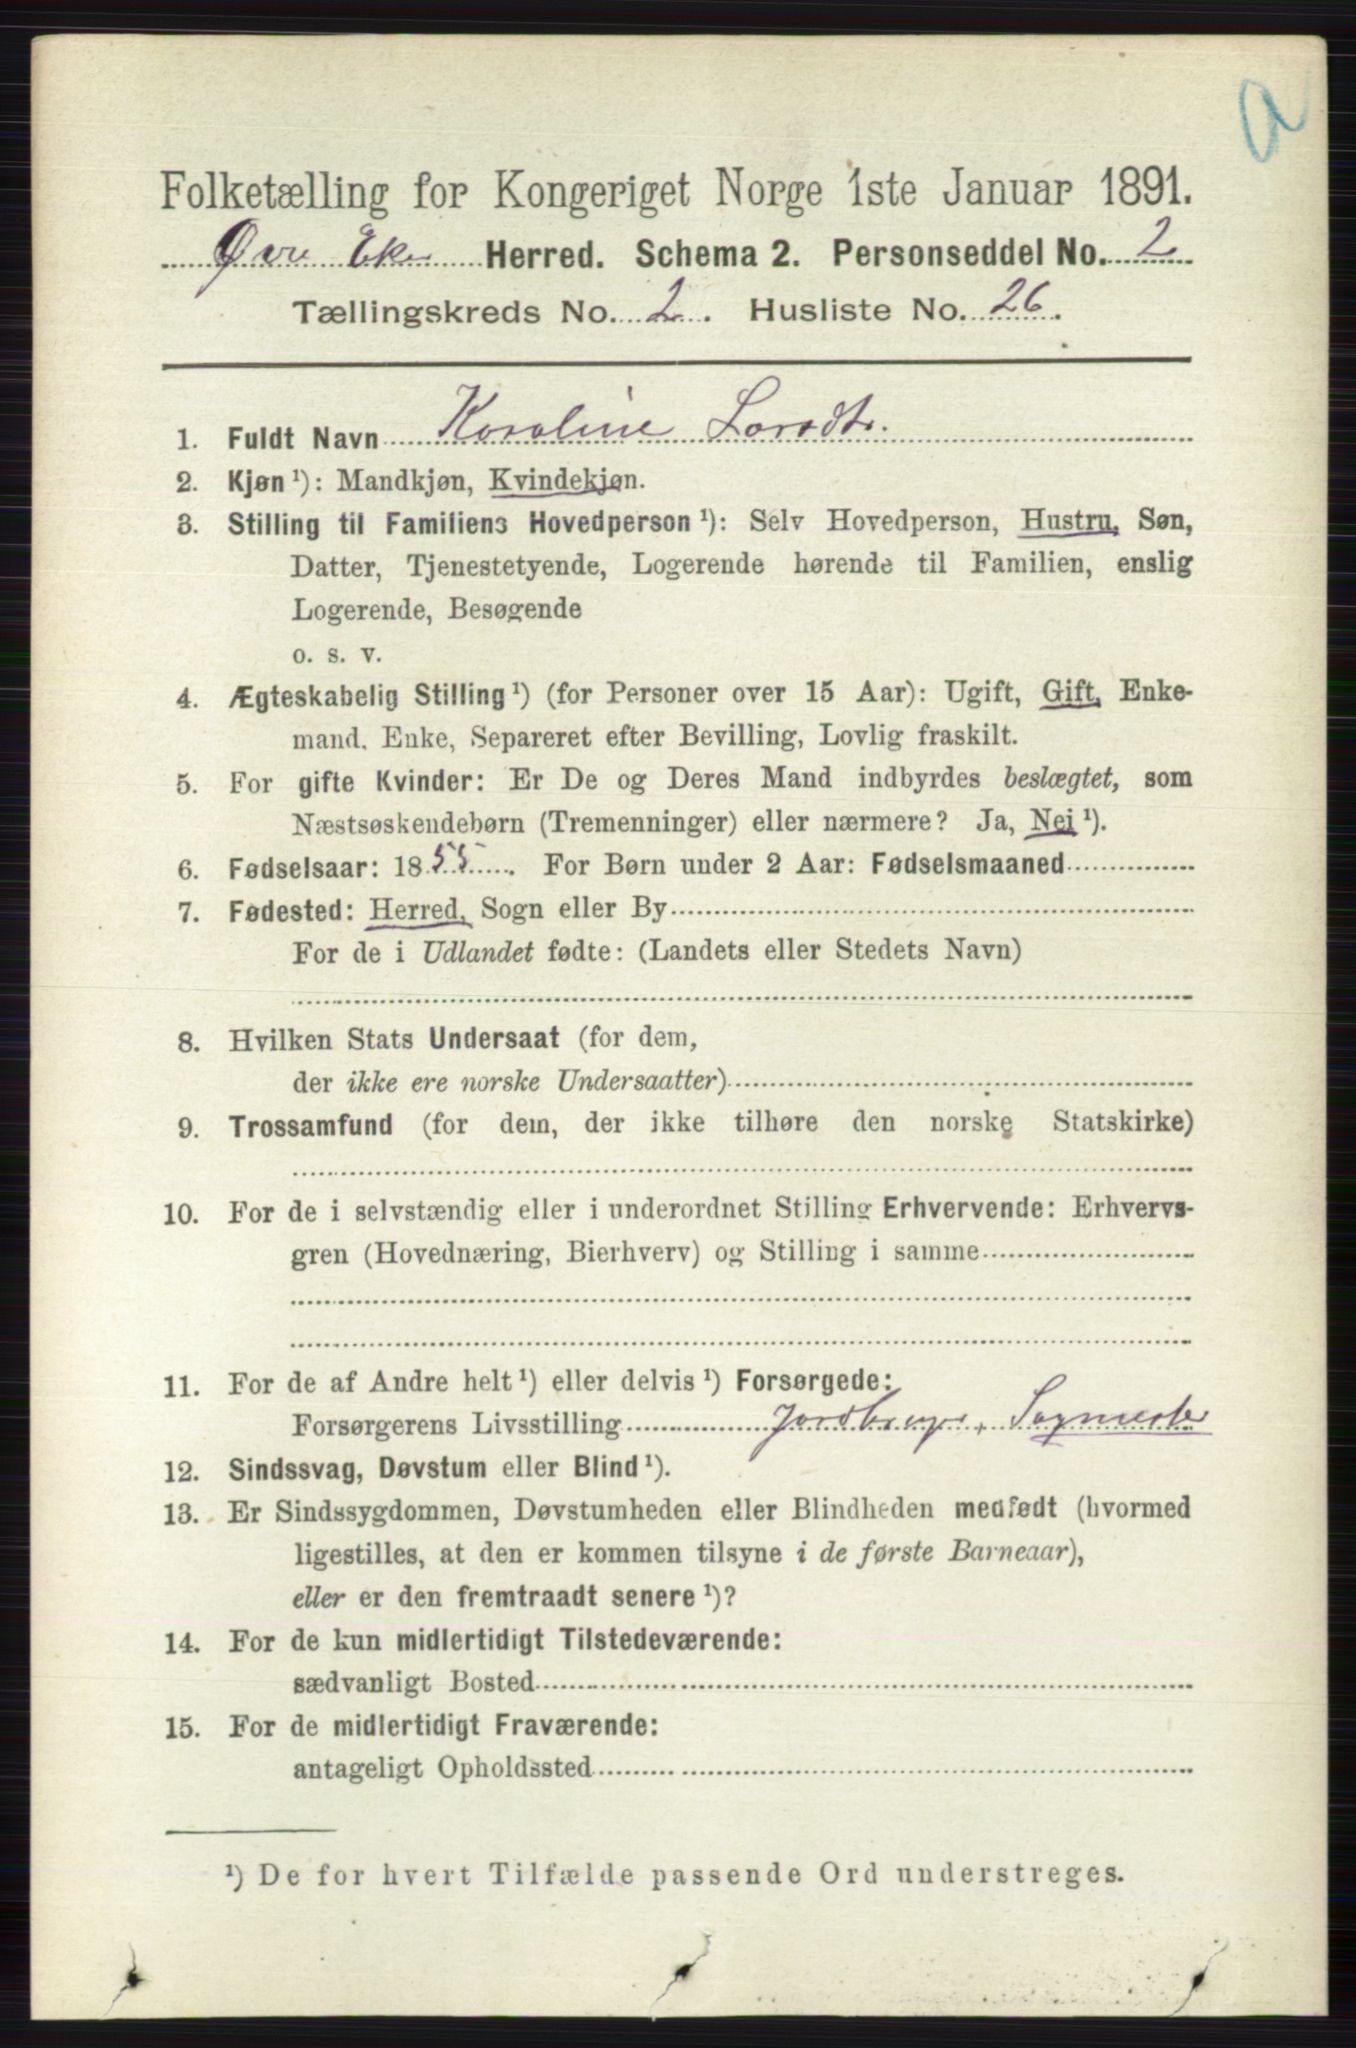 a
Folketælling for Kongeriget Norge 1ste Januar 1891.
Øvre Eker Herred. Schema 2. Personseddel No. 2
Tællingskreds No. 2. Husliste No. 26.
1. Fuldt Navn Karoline Larsdtr.
2. Kjøn ¹): Mandkjøn, Kvindekjøn.
3. Stilling til Familiens Hovedperson ¹): Selv Hovedperson, Hustru, Søn,
Datter, Tjenestetyende, Logerende hørende til Familien, enslig
Logerende, Besøgende
o. s. v.
4. Ægteskabelig Stilling ¹) (for Personer over 15 Aar): Ugift, Gift, Enke-
mand, Enke, Separeret efter Bevilling, Lovlig fraskilt.
5. For gifte Kvinder: Er De og Deres Mand indbyrdes beslægtet, som
Næstsøskendebørn (Tremenninger) eller nærmere? Ja, Nei ¹).
6. Fødselsaar: 1855. For Børn under 2 Aar: Fødselsmaaned
7. Fødested: Herred, Sogn eller By
For de i Udlandet fødte: (Landets eller Stedets Navn)
8. Hvilken Stats Undersaat (for dem,
der ikke ere norske Undersaatter)
9. Trossamfund (for dem, der ikke tilhøre den norske Statskirke)
10. For de i selvstændig eller i underordnet Stilling Erhvervende: Erhvervs-
gren (Hovednæring, Bierhverv) og Stilling i samme
11. For de af Andre helt ¹) eller delvis ¹) Forsørgede:
Forsørgerens Livsstilling Jordbruger, Sagmester
12. Sindssvag, Døvstum eller Blind ¹).
13. Er Sindssygdommen, Døvstumheden eller Blindheden medfødt (hvormed
ligestilles, at den er kommen tilsyne i de første Barneaar),
eller er den fremtraadt senere ¹)?
14. For de kun midlertidigt Tilstedeværende:
sædvanligt Bosted
15. For de midlertidigt Fraværende:
antageligt Opholdssted
¹) De for hvert Tilfælde passende Ord understreges.